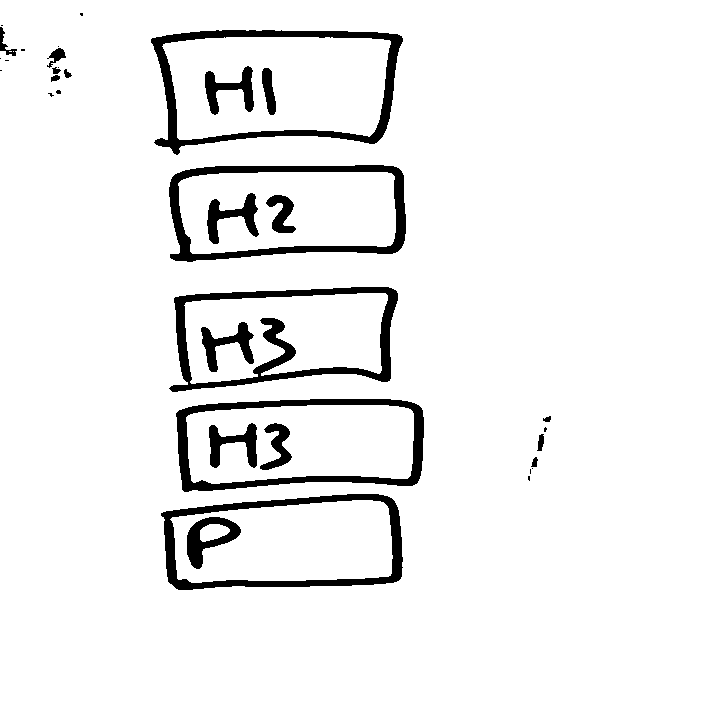 H1
H2
H3
H3
P